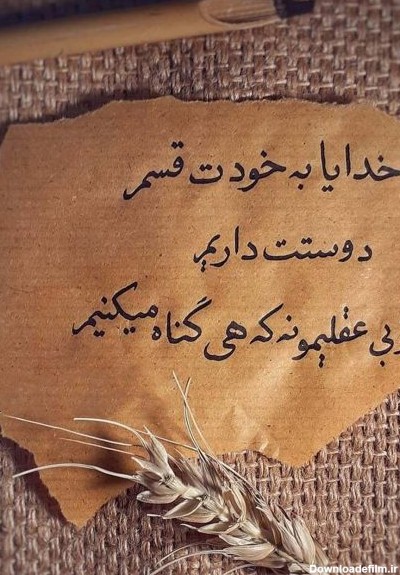 خدایا به خودت قسم
دوستت داریم
بی عقلیمونه که هی گناه میکنیم
Downloadefilm.ir